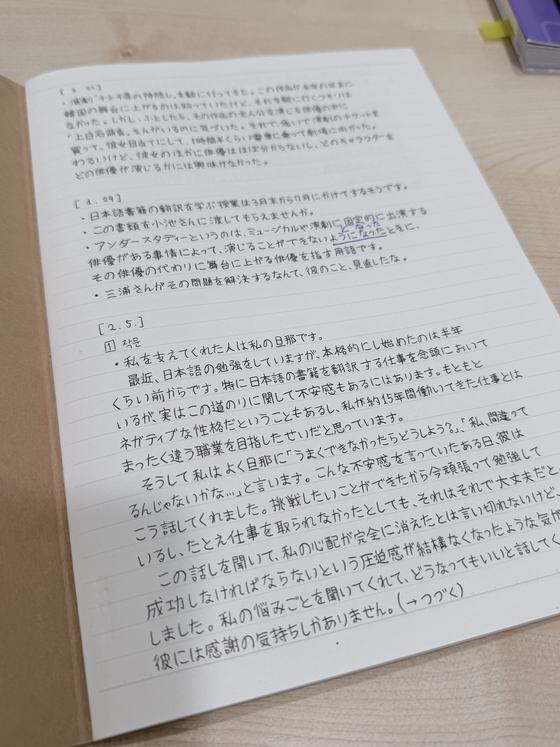 ・演劇「千と千尋の神隠し」を観に行ってきた。この作品が
韓国の舞台に上がるのは知っていたけど、それを観に行くつもりは
なかった。しかし、ふとしたら、その作品の主人公を演じる俳優の中に
「上白石萌音」さんがいるのに気づいた。それで、急いで演劇のチケットを
買って、彼女目当てにして、1時間半くらい電車に乗って劇場に向かった。
わるいけど、彼女のほかに俳優はほぼ分からないし、どのキャラクターを
どの俳優が演じるかには興味がなかった。
・日本語書籍の翻訳を学ぶ授業は3月末から7月にかけてするそうです。
・この書類を小池さんに渡してもらえませんか。
・アンダースタディーというのは、ミュージカルや演劇に固定的に出演する
俳優がある事情によって、演じることができないようになったときに、
となった
その俳優の代わりに舞台に上がる俳優を指す用語です。
・三浦さんがその問題を解決するなんて、彼のこと、見直したな。
[2.5.]
1 작문
・私を支えてくれた人は私の旦那です。
最近、日本語の勉強をしていますが、本格的にし始めたのは半年
くらい前からです。特に日本語の書籍を翻訳する仕事を念頭において
いるが、実はこの道のりに関して不安感もあるにはあります。もともと
ネガティブな性格だということもあるし、私が約15年間働いてきた仕事とは
まったく違う職業を目指したせいだと思っています。
そうして私はよく旦那に「うまくできなかったらどうしよう?」、「私、間違って
るんじゃないかな…」と言います。こんな不安感を言っていたある日、彼は
こう話してくれました。挑戦したいことができたから今頑張って勉強して
いるし、たとえ仕事を取られなかったとしても、それはそれで大丈夫だと
この話しを聞いて、私の心配が完全に消えたとは言い切れないけど、
成功しなければならないという圧迫感が結構なくなったような気が
しました。私の悩みごとを聞いてくれて、どうなってもいいと話してく
彼には感謝の気持ちしかありません。(→つづく)